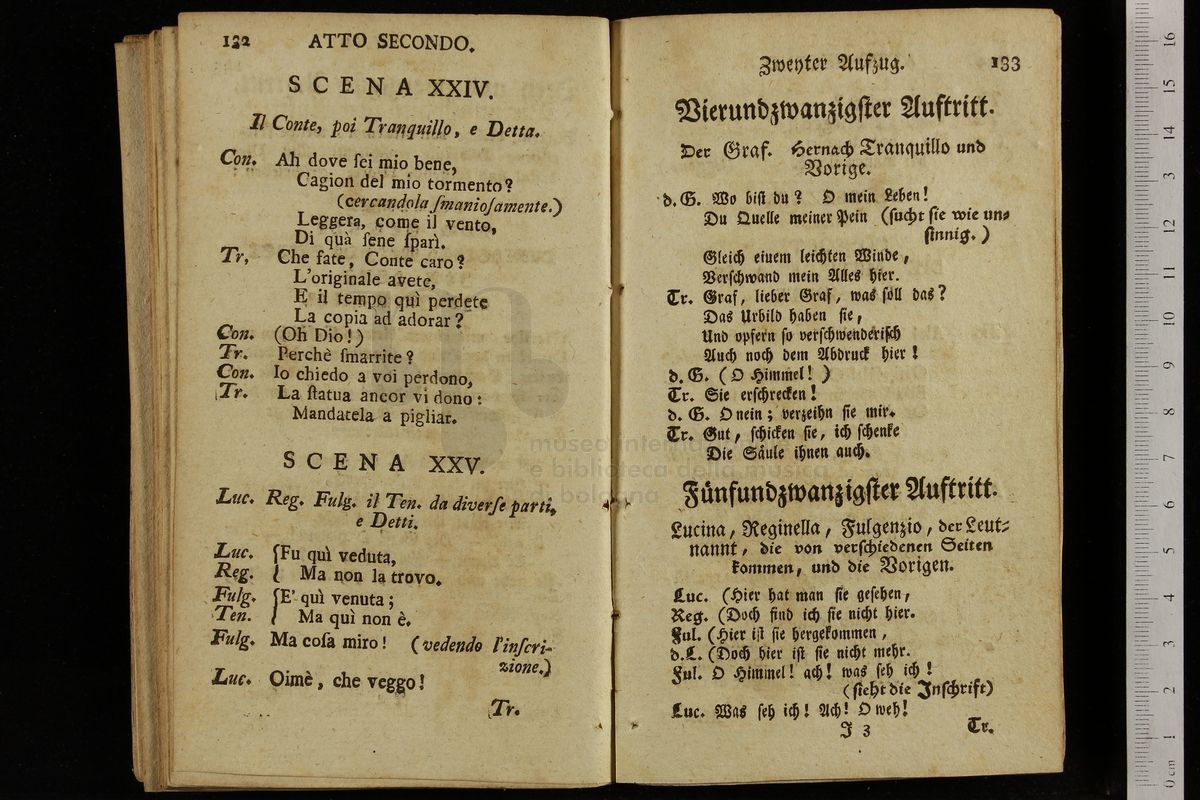 132 ATTO SECONDO.
SCENA XXIV.
Il Conte, poi Tranquillo, e Detta.
Con. Ah dove ſei mio bene,
Cagion del mio tormento?
(cercandola ſmanioſamente.)
Leggera, come il vento,
Di quà ſene ſparì.
Tr, Che fate, Conte caro?
L'originale avete,
E il tempo quì perdete
La copia ad adorar?
Con. (Oh Dio!)
Tr. Perchè ſmarrite?
Con. Io chiedo a voi perdono,
Tr. La ſtatua ancor vi dono:
Mandatela a pigliar.
SCENA XXV.
Luc. Reg. Fulg. il Ten. da diverſe parti,
e Detti.
Luc. {Fu quì veduta,
Reg. { Ma non la trovo.
Fulg. {E' quì venuta;
Ten. { Ma quì non è.
Fulg. Ma coſa miro! (vedendo l'inſcri-
zione.)
Luc. Oimè, che veggo!
Tr.
Zweyter Aufzug. 133
Vierundzwanzigſter Auftritt.
Der Graf. Hernach Tranquillo und
Vorige.
d. G. Wo biſt du? O mein Leben!
Du Quelle meiner Pein (ſucht ſie wie un⸗
ſinnig.)
Gleich einem leichten Winde,
Verſchwand mein Alles hier.
Tr. Graf, lieber Graf, was ſoll das?
Das Urbild haben ſie,
Und opfern ſo verſchwenderiſch
Auch noch dem Abdruck hier!
d. G. (O Himmel!)
Tr. Sie erſchrecken!
d. G. O nein; verzeihn ſie mir.
Tr. Gut, ſchicken ſie, ich ſchenke
Die Säule ihnen auch.
Fünfundzwanzigſter Auftritt.
Lucina, Reginella, Fulgenzio, der Leut⸗
nannt, die von verſchiedenen Seiten
kommen, und die Vorigen.
Luc. (Hier hat man ſie geſehen,
Reg. (Doch find ich ſie nicht hier.
Ful. (Hier iſt ſie hergekommen,
d. L. (Doch hier iſt ſie nicht mehr.
Ful. O Himmel! ach! was ſeh ich!
(ſieht die Inſchrift)
Luc. Was ſeh ich! Ach! O weh!
J 3 Tr.
museo interna
e biblioteca della musica
di bologna
0 cm 1 2 3 4 5 6 7 8 9 10 11 12 13 14 15 16